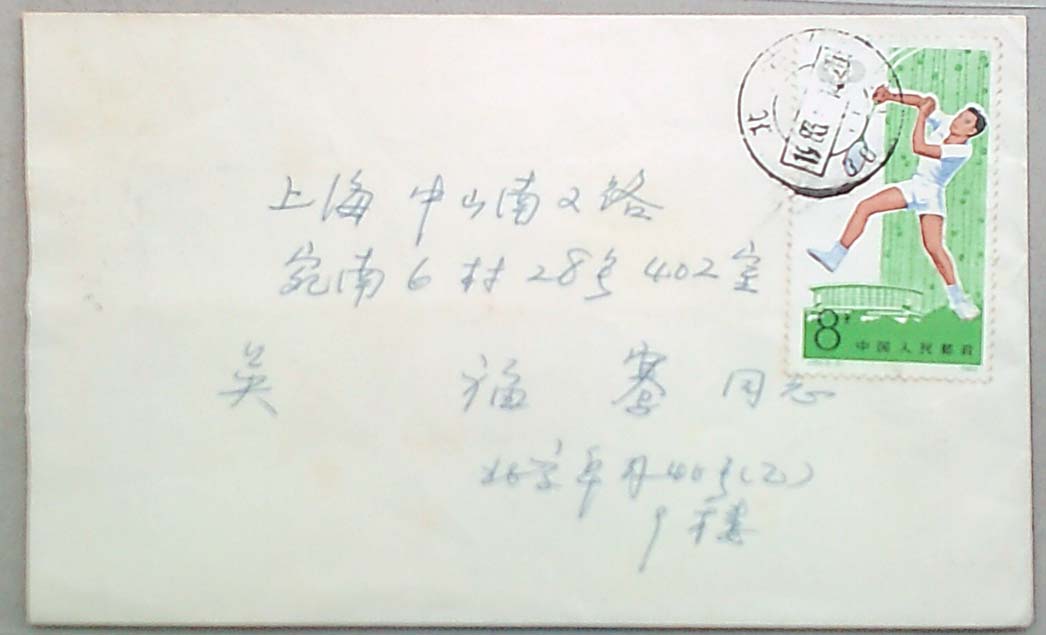 上海中山南2路
宛南6村28号402室
吴福 同志
北京 40号(乙)
9楼
北
8分
中国人民邮政